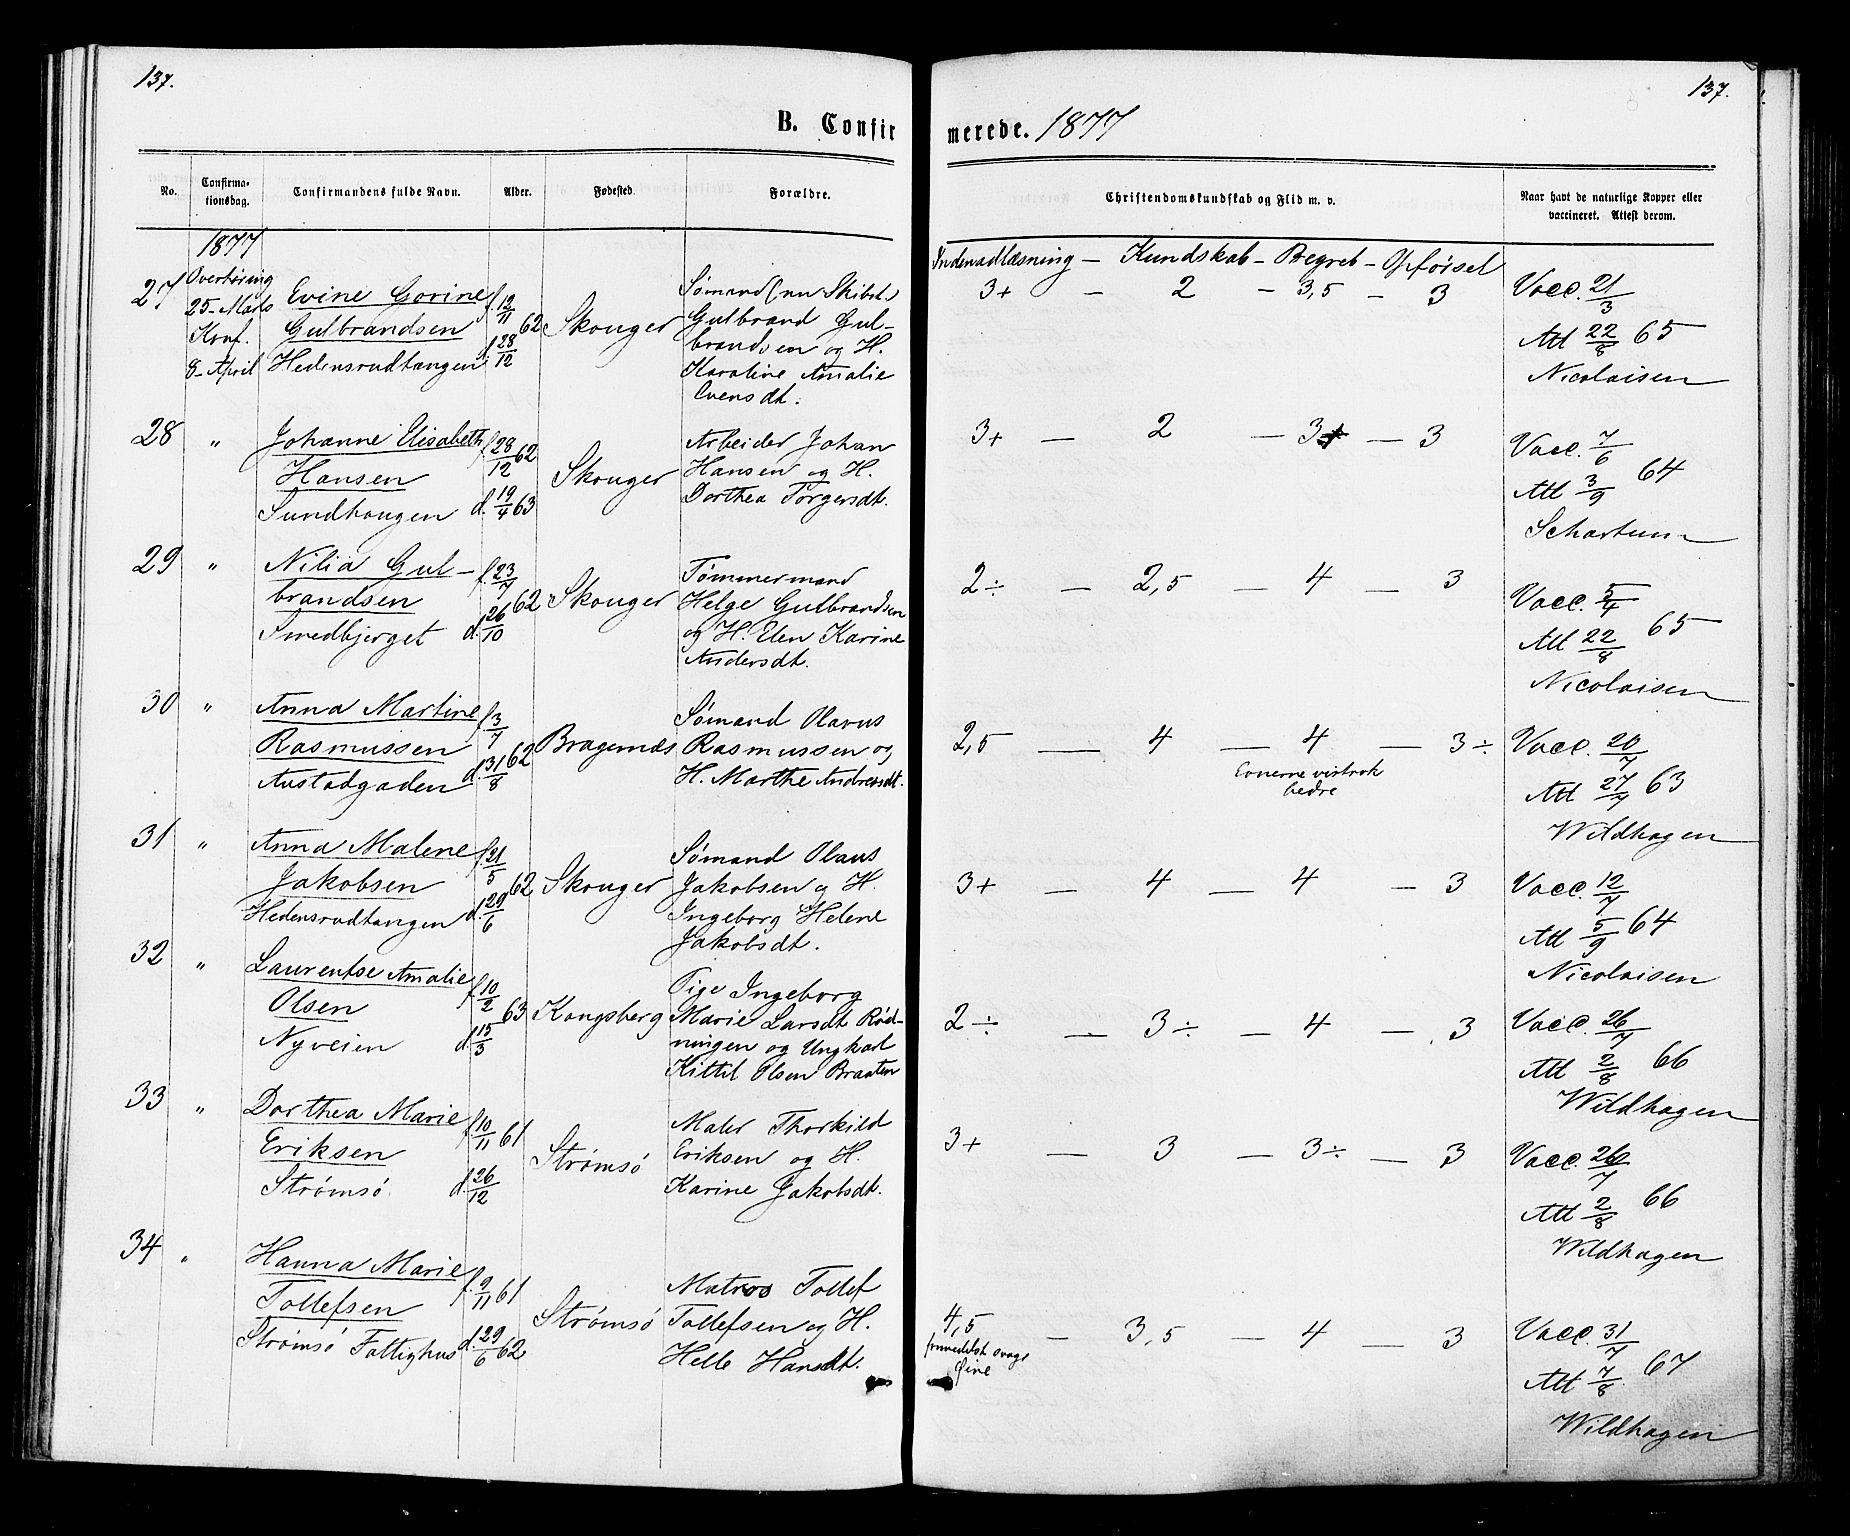 137.
137.
B. Confirmerede. 1877
No.
Confirmationsdag.
Confirmandens fulde Navn.
Alder.
Fødested.
Forældre.
Christendomskundskab og Flid m. v.
Naar havt de naturlige Kopper eller vaccineret. Attest derom.
1877
Indenadlæsning – Kundskab – Begreb – Opførsel
27
Overhøring
25– Marts
Konf.
8– April
Evine Gorine
Gulbrandsen
Hedensrudtangen
f. 12/11 62
d. 28/12
Skouger
Sømand (nu Skibst.)
Gulbrand Gul-
brandsen og H.
Karoline Amalie
Evensdt.
3+ – 2 – 3,5 – 3
Vacc. 21/3
Att 22/8 65
Nicolaisen
28 "
Johanne Elisabeth
Hansen
Sundhougen
f. 28/12 62
d. 19/4 63
Skouger
Arbeider Johan
Hansen og H.
Dorthea Torgersdt.
3+ – 2 – 3+ – 3
Vacc. 7/6
Att 3/9 64
Schartum
29 "
Nilia Gul-
brandsen
Smedbjerget
f. 23/7 62
d. 26/10
Skouger
Tømmermand
Helge Gulbrandsen
og H. Elen Karine
Andersdt.
2÷ – 2,5 – 4 – 3
Vacc. 5/4
Att 22/8 65
Nicolaisen
30 "
Anna Martine
Rasmussen
Austadgaden
f. 3/7 62
d. 31/8
Bragernæs
Sømand Olavus
Rasmussen og
H. Marthe Andreasdt.
2,5 – 4 – 4 – 3÷
Evnerne vistnok
bedre
Vacc. 20/7
Att 27/7 63
Wildhagen
31 "
Anna Malene
Jakobsen
Hedensrudtangen
f. 21/5 62
d. 29/6
Skouger
Sømand Olaus
Jakobsen og H.
Ingeborg Helene
Jakobsdt.
3+ – 4 – 4 – 3
Vacc. 12/7
Att 5/9 64
Nicolaisen
32 "
Laurentse Amalie
Olsen
Nyveien
f. 10/2 63
d. 15/3
Kongsberg
Pige Ingeborg
Marie Larsdt Rød-
ningen og Ungkarl
Kittil Olsen Braaten
2÷ – 3÷ – 4 – 3
Vacc. 26/7
Att 2/8 66
Wildhagen
33 "
Dorthea Marie
Eriksen
Strømsø
f. 10/11 61
d. 26/12
Strømsø
Maler Thorkild
Eriksen og H.
Karine Jakobsdt.
3+ – 3 – 3÷ – 3
Vacc. 26/7
Att 2/8 66
Wildhagen
34 "
Hanna Marie
Tollefsen
Strømsø Fattighus
f. 9/11 61
d. 29/6 62
Strømsø
Matros Tollef
Tollefsen og H.
Helle Hansdt.
4,5 – 3,5 – 4 – 3
svage
Øine
Vacc. 31/7
Att 7/8 67
Wildhagen